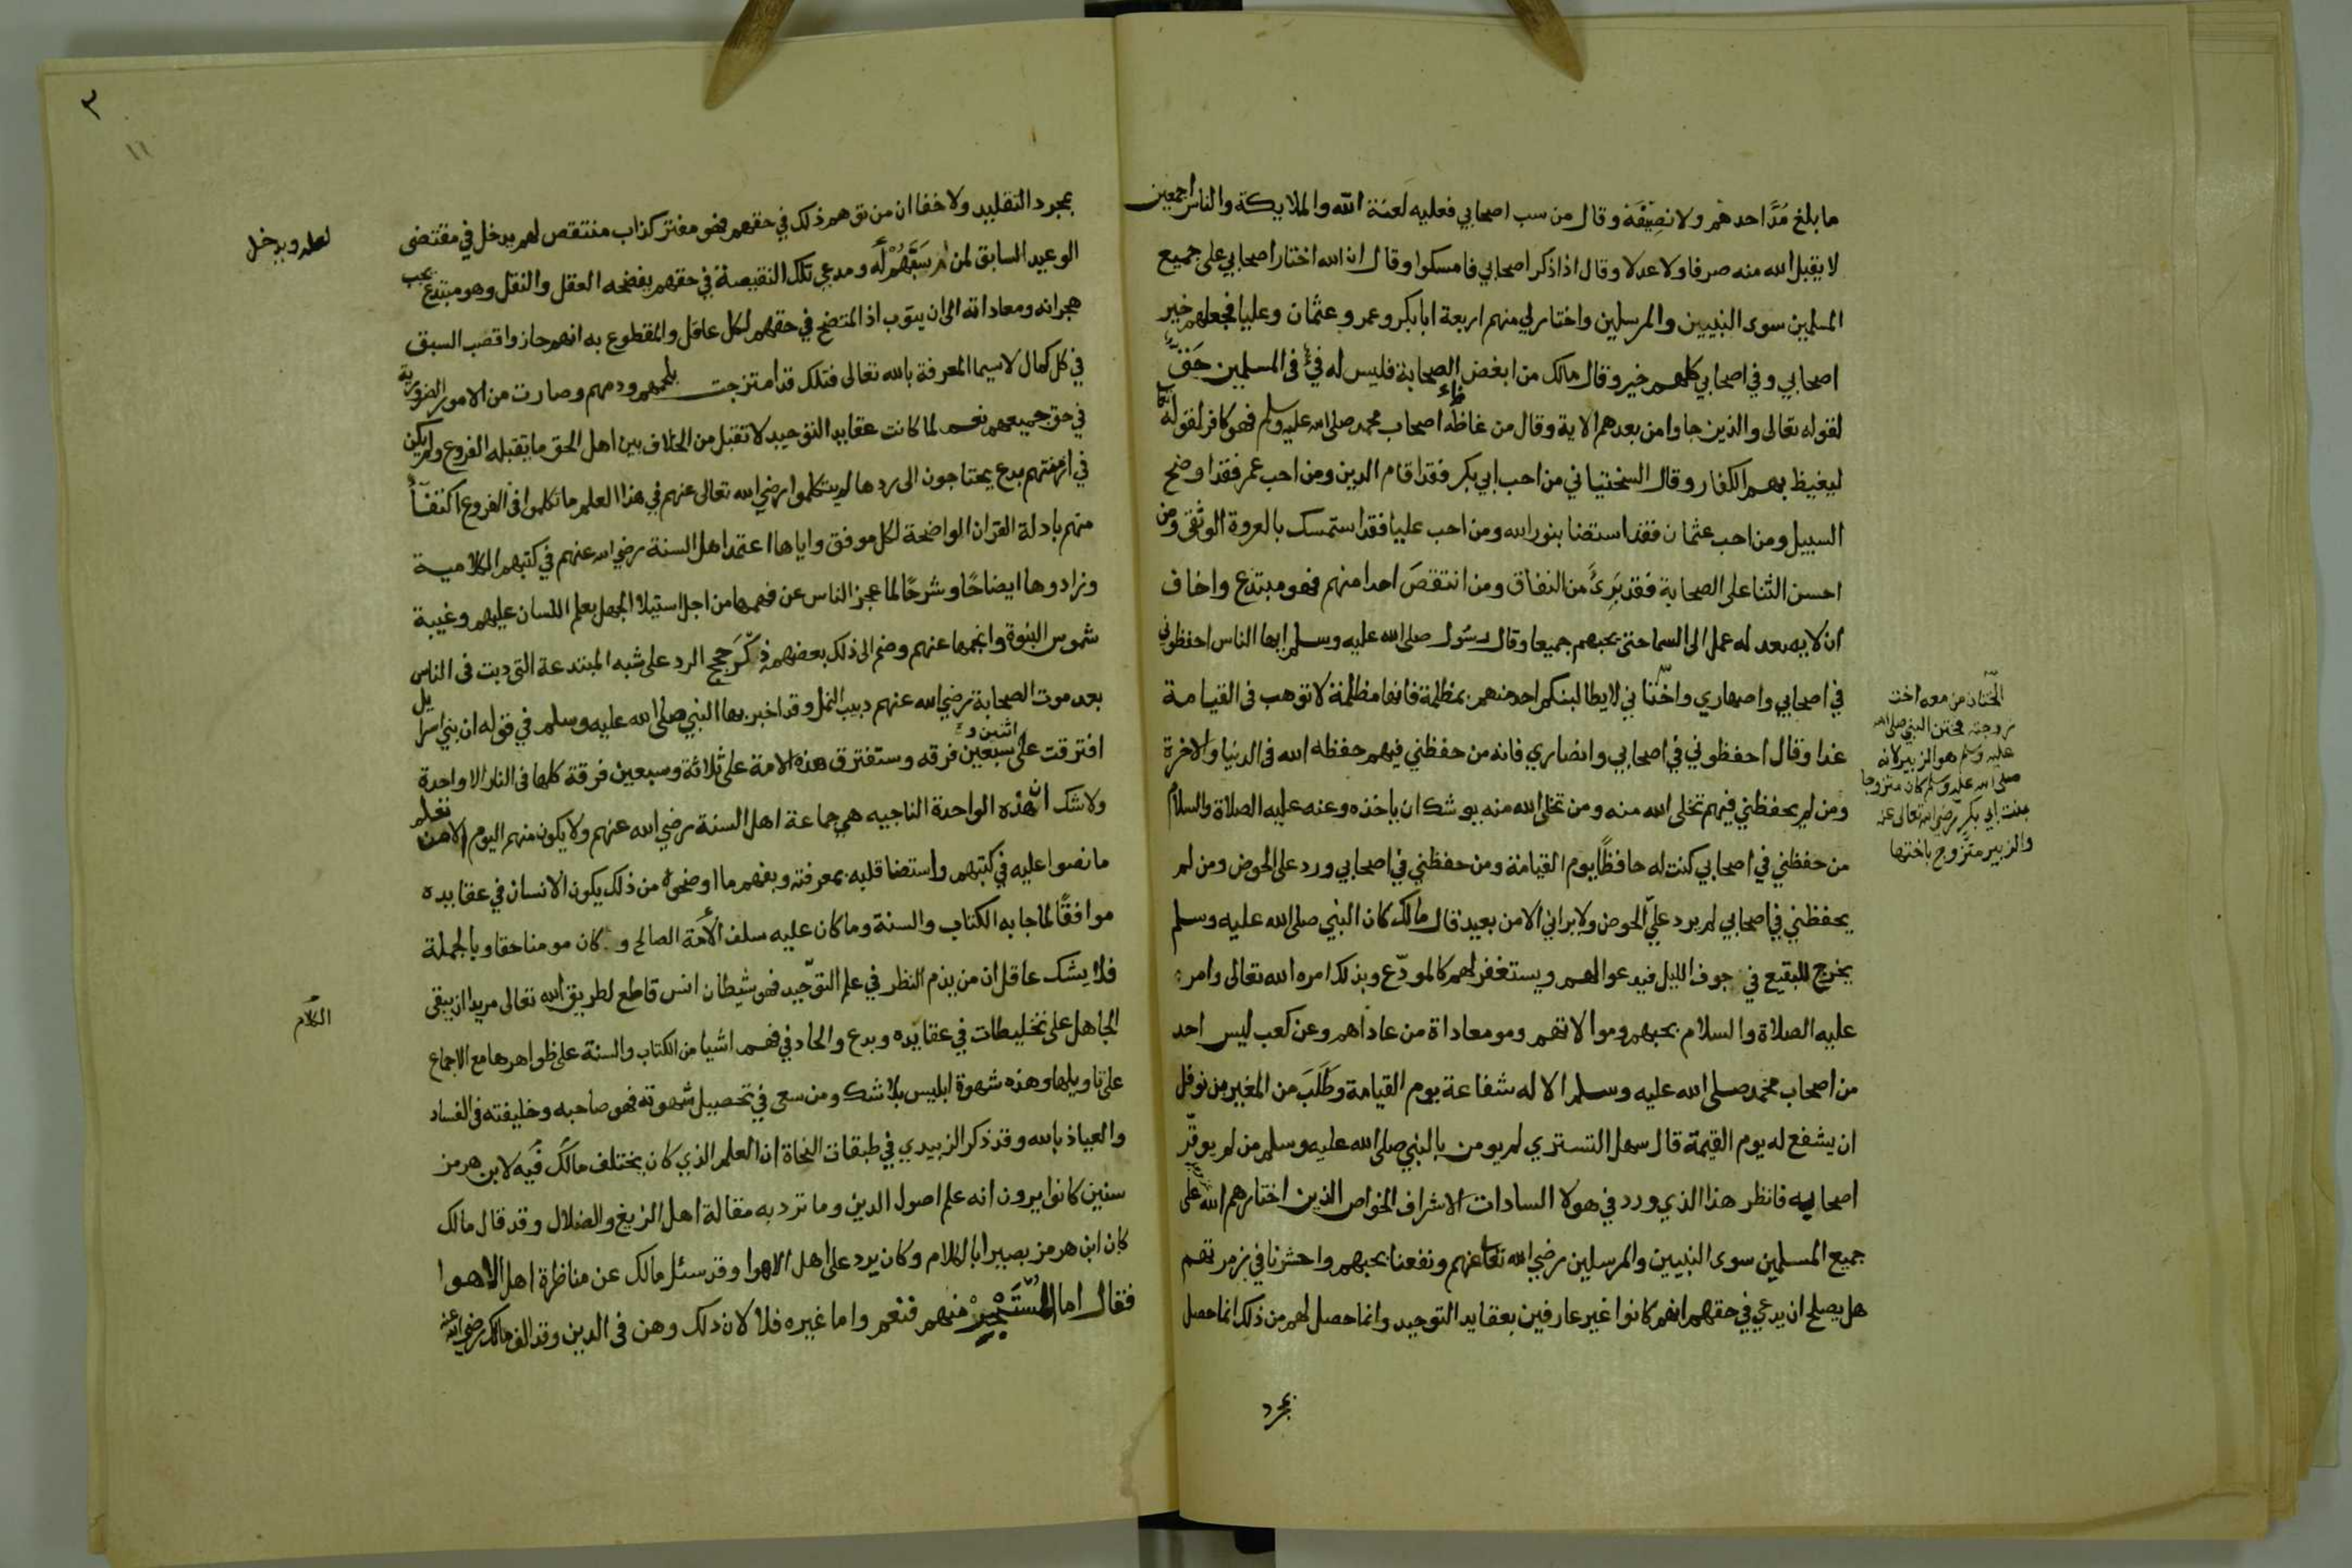 ما بلغ مُدَّ احدهم ولا نصيفه وقال من سب اصحابي فعليه لعنة الله والملايكة والناس اجمعين
لا يقبل الله منه صرفا ولا عدلا وقال اذا ذكر اصحابي فامسكوا وقال ان الله اختار اصحابي على جميع
المسلمين سوى النبيين والمرسلين واختار لي منهم اربعة ابا بكر وعمر وعثمان وعليا فجعلهم خير
اصحابي وفي اصحابي كلهم خير وقال مالك من ابغض الصحابة فليس له في فئ المسلمين حق
لقوله تعالى والذين جاوا من بعدهم الاية وقال من غاظه اصحاب محمد صلى الله عليه وسلم فهو كافر لقوله تعا
ليغيظ بهم الكفار وقال السختياني من احب ابي بكر فقد اقام الدين ومن احب عمر فقد اوضح
السبيل ومن احب عثمان فقد استضا بنور الله ومن احب عليا فقد استمسك بالعروة الوثقى ومن
احسن الثنا على الصحابة فقد بَرِئَ من النفاق ومن انتقص احدا منهم فهو مبتدع واخاف
ان لا يصعد له عمل الى السما حتى يحبهم جميعا وقال رسول صلى الله عليه وسلم ايها الناس احفظوني
في اصحابي واصهاري واختاني لا يطالبنكم احد منهم بمظلمة فانها مظلمة لا توهب في القيامة
غدا وقال احفظوني في اصحابي وانصاري فانه من حفظني فيهم حفظه الله في الدنيا والاخرة
ومن لم يحفظني فيهم تخلى الله منه ومن تخلى الله منه يوشك ان ياخذه وعنه عليه الصلاة والسلام
من حفظني في اصحابي كنت له حافظًا يوم القيامة ومن حفظني في اصحابي ورد على الحوض ومن لم
يحفظني في اصحابي لم يرد عليّ الحوض ولا يراني الا من بعيد قال مالك كان النبي صلى الله عليه وسلم
يخرج للبقيع في جوف الليل فيدعوا لهم ويستغفر لهم كالمودّع وبذلك امره الله تعالى وامر
عليه الصلاة والسلام بحبهم وموالاتهم ومومعاداة من عاداهم وعن كعب ليس احد
من اصحاب محمد صلى الله عليه وسلم الا له شفاعة يوم القيامة وطَلَبَ من المغيرة بن نوفل
ان يشفع له يوم القيمة قال سهل التستري لم يومن بالنبي صلى الله عليه وسلم من لم يوقّر
اصحابه فانظر هذا الذي ورد في هولا السادات الاشراف الخواص الذين اختارهم الله على
جميع المسلمين سوى النبيين والمرسلين رضي الله تعا عنهم ونفعنا بحبهم واحشرنا في زمرتهم
هل يصلح ان يدعي في حقهم انهم كانوا غير عارفين بعقايد التوحيد وانما حصل لهم من ذلك انما حصل
بمجرد
الختان من معه اخت
زوجته فختن النبي صلى الله
عليه وسلم هو الزبير لانه
صلى الله عليه وسلم كان متزوجا
ببنت ابي بكر رضي الله تعالى عنه
والزبير متزوج باختها
٣
١١
بمجرد التقليد ولا خفا ان من توهم ذلك في حقهم فهو مفتر كذاب منتقص لهم يدخل في مقتضى
الوعيد السابق لمن لم سَبَّهُمْ له ومدعي تلك النقيصة في حقهم يفضحه العقل والنقل وهو مبتدع يجب
هجرانه ومعاداته الى ان يتوب اذ المتضح في حقهم لكل عاقل والمقطوع به انهم حازوا قصب السبق
في كل كمال لا سيما المعرفة بالله تعالى فتلك قد امتزجت بلحمهم ودمهم وصارت من الامور الضرورية
في حق جميعهم نعم لما كانت عقايد التوحيد لا تقبل من الخلاف بين اهل الحق ما يقبله الفروع ولم يكن
في ازمنتهم بدع يحتاجون الى ردها لم يتكلموا رضي الله تعالى عنهم في هذا العلم ما تكلموا في الفروع اكتفآءً
منهم بادلة القران الواضحة لكل موفق واياها اعتمد اهل السنة رضي الله عنهم في كتبهم الكلامية
وزادوها ايضاحًا وشرحًا لما عجز الناس عن فهمها من اجل استيلا الجهل بعلم اللسان عليهم وغيبة
شموس النبوة وانجمها عنهم وضم الى ذلك بعضهم ذكر حجج الرد على شبه المبتدعة التي دبت في الناس
بعد موت الصحابة رضي الله عنهم دبيب النمل وقد اخبر بها النبي صلى الله عليه وسلم في قوله ان بني اسرايل
افترقت على اثنين وسبعين فرقه وستفترق هذه الامة على ثلاثة وسبعين فرقة كلها في النار الا واحدة
ولا شك ان هذه الواحدة الناجيه هي جماعة اهل السنة رضي الله عنهم ولا يكون منهم اليوم الا من تعلم
ما نصوا عليه في كتبهم واستضا قلبه بمعرفته وبفهم ما اوضحوه من ذلك يكون الانسان في عقايده
موافقًا لما جا به الكتاب والسنة وما كان عليه سلف الأمة الصالح و كان مومنا حقا وبالجملة
فلا يشك عاقل ان من يذم النظر في علم التوحيد فهو شيطان انس قاطع لطريق الله تعالى مريدا ان يبقى
الجاهل على تخليطات في عقايده وبدع والحاد في فهم اشيا من الكتاب والسنة على ظواهرها مع الاجماع
على تاويلها وهذه شهوة ابليس بلا شك ومن سعى في تحصيل شهوته فهو صاحبه وخليفته في الفساد
والعياذ بالله وقد ذكر الزبيدي في طبقات النحاة ان العلم الذي كان يختلف مالك فيه لابن هرمز
سنين كانوا يرون انه علم اصول الدين وما ترد به مقالة اهل الزيغ والضلال وقد قال مالك
كان ابن هرمز بصيرا بالكلام وكان يرد على اهل الاهوا وقد سئل مالك عن مناظرة اهل الاهوا
فقال اما منهم فنعم واما غيره فلا لان ذلك وهن في الدين وقد الف مالك رضي الله عنه
لعله ويدخل
الكلام